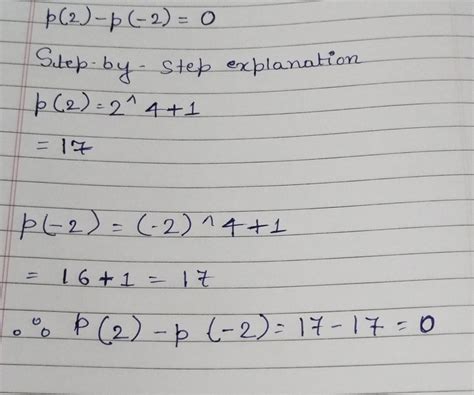 p(2)-p(-2)=0
Sdep-by-step explanation
p(2)=2^4+1
=17
p(-2)=(-2)^4+1
= 16+1=17
∴ p(2)-p(-2)=17-17=0